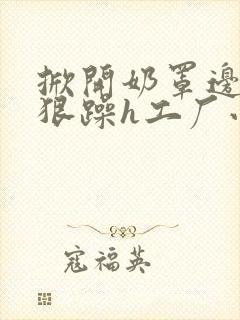 掀開奶罩邊
狠躁h工厂
寇福英